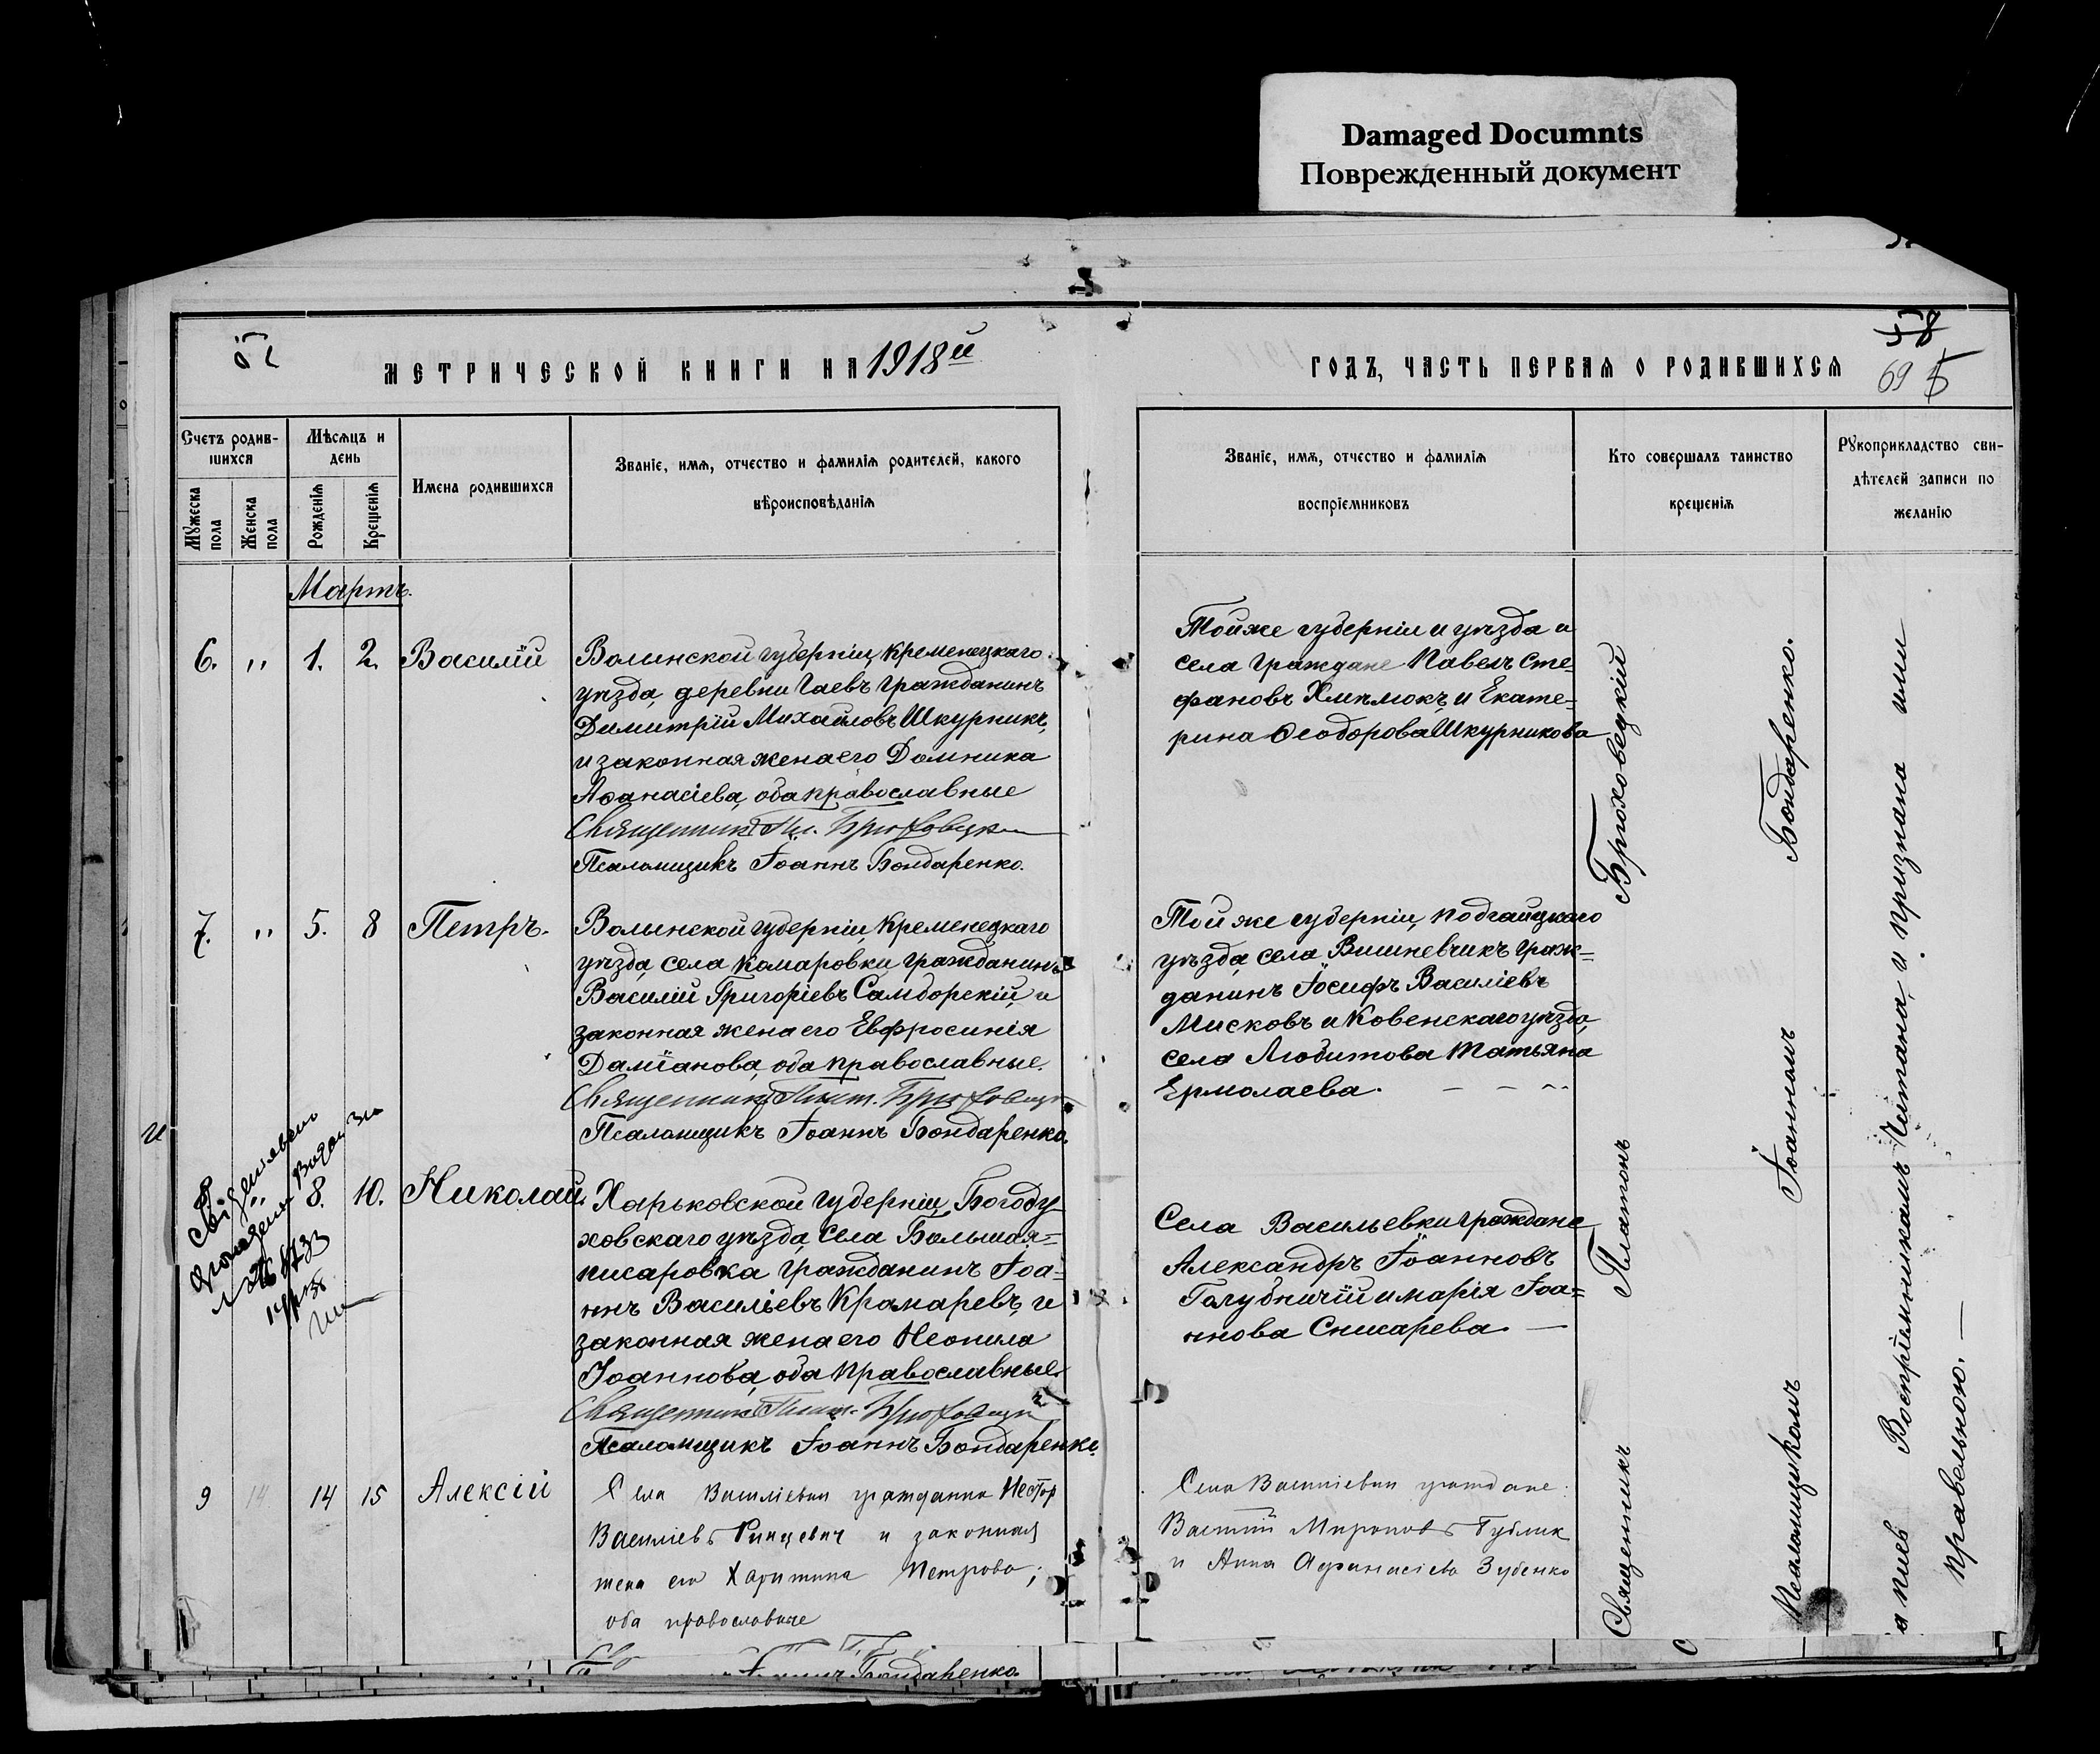 Damaged Documnts
Поврежденный документ
МЕТРИЧЕСКОЙ КНИГИ НА 1918й
ГОДЪ, ЧАСТЬ ПЕРВАЯ О РОДИВШИХСЯ
58
69
Счетъ родив-
шихся
Мѣсяцъ и
день
Имена родившихся
Званіе, имя, отчество и фамилія родителей, какого
вѣроисповѣданія
Мужеска
пола
Женска
пола
Рожденія
Крещенія
Званіе, имя, отчество и фамилія
воспріемниковъ
Кто совершалъ таинство
крещенія
Рукоприкладство сви-
дѣтелей записи по
желанію
Мартъ.
6. " 1. 2. Василій
Волинской губерніи, Кременецкаго
уѣзда, деревни Гаевъ гражданинъ
Димитрій Михайловъ Шкурникъ,
и законная жена его Домника
Аѳанасіева, оба православные
Священникъ Пл. Брюховецкій
Псаломщикъ Іоаннъ Бондаренко.
Тойже губерніи и уѣзда и
села граждане Павелъ Сте=
фановъ Хмѣлюкъ, и Екате=
рина Ѳеодорова Шкурникова
7. " 5. 8 Петръ.
Волынской губерніи, Кременецкаго
уѣзда, села Комаровки, гражданинъ
Василій Григоріевъ Самборскій, и
законная жена его Евфросинія
Даміанова, оба православные.
Священникъ Плат. Брюховецкій
Псаломщикъ Іоаннъ Бондаренко.
Той же губерніи, Подгаицкаго
уѣзда, села Вишневчикъ граж=
данинъ Іосифъ Василіевъ
Мисковъ и Ковенскаго уѣзда,
села Любитова Татьяна
Ермолаева.
" 8. 10. Николай.
Харьковской губерніи, Богоду
ховскаго уѣзда, села Большая=
писаровка гражданинъ Іоа=
ннъ Василіевъ Крамаревъ, и
законная жена его Неонила
Іоаннова, оба православные.
Священникъ Плат. Брюховецкій
Псаломщикъ Іоаннъ Бондаренко.
Села Васильевки граждане
Александръ Іоанновъ
Голубничій и Марія Іоа=
ннова Снисарева.
9 14 14 15 Алексій
Села Василіевки гражданин Нестор
Василіевъ и законная
жена его Харитина Петрова;
оба православные
Села Василіевки граждане:
Василій Мироновъ Бублик
и Анна Афанасіева Зубенко
Іоаннъ Бондаренко
Священникъ Платонъ Брюховецкій
Псаломщикомъ Іоанномъ Бондаренко.
Воспріемникамъ читана, и признана ими
правельною.